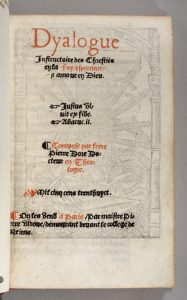 Dyalogue
Instructoire des Chrestiẽs
en la foy, esperance,
& amour en Dieu.
Justus vi
uit ex fide.
Abacuc. ii.
Compose par frere
Pierre Dore Do-
cteur en Theo-
logie.
Mil cinq cens trenthuyct.
On les vend a Paris / Par maistre Pi
erre Vidoue, demourant devant le college de
Reims.